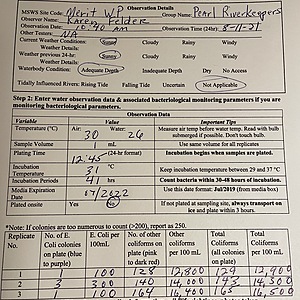 Observation Details
MSWS Site Code: Merit W.P Group Name: Pearl Riverkeepers
Observer Name: Karen Felder
Observation Date: 10:40 am Observation Time (24hr): 8-11-21
Other Testers: NA
Current Weather Conditions: Sunny Cloudy Rainy Windy
Weather previous 24-hr: Sunny Cloudy Rainy Windy
Waterbody Condition: Adequate Depth Inadequate Depth Dry No Access
Tidally Influenced Rivers: Rising Tide Falling Tide Uncertain Not Applicable
Step 2: Enter water observation data & associated bacteriological monitoring parameters if you are monitoring bacteriological parameters.
Observation Data
Variable Value Important Tips
Temperature (°C) Air: 30 Water: 26 Measure air temp before water temp. Read with bulb submerged if possible. Don't touch bulb.
Sample Volume 1 mL Use same volume for all replicates
Plating Time 12:45 (24-hr format) Incubation begins when samples are plated.
Incubation Temperature 31 °C Incubation temperature between 29 and 37 °C
Incubation Periods 41 hrs Count bacteria within 30-48 hours of incubation.
Media Expiration Date Use this date format: Jul/2019 (from media box)
Plated onsite Yes No If not plated at sampling site, always transport on ice and plate within 3 hours.
*Note: If colonies are too numerous to count (>200), report as 250.
Replicate No. No. of E. Coli colonies on plate (blue to purple) E. Coli per 100mL No. of other coliforms on plate (pink to dark red) Other Coliforms per 100mL Total Coliforms (all colonies on plate) Total Coliforms per 100mL
1 1 100 128 12,800 129 12,900
2 3 300 140 14,000 143 14,300
3 1 100 164 16,400 165 16,500